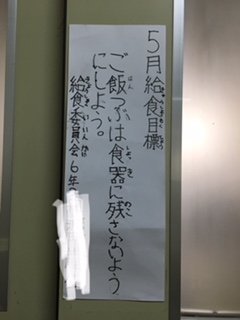 5月給食目標
ご飯つぶは食器に残さないよう
にしよう。
給食委員会6年